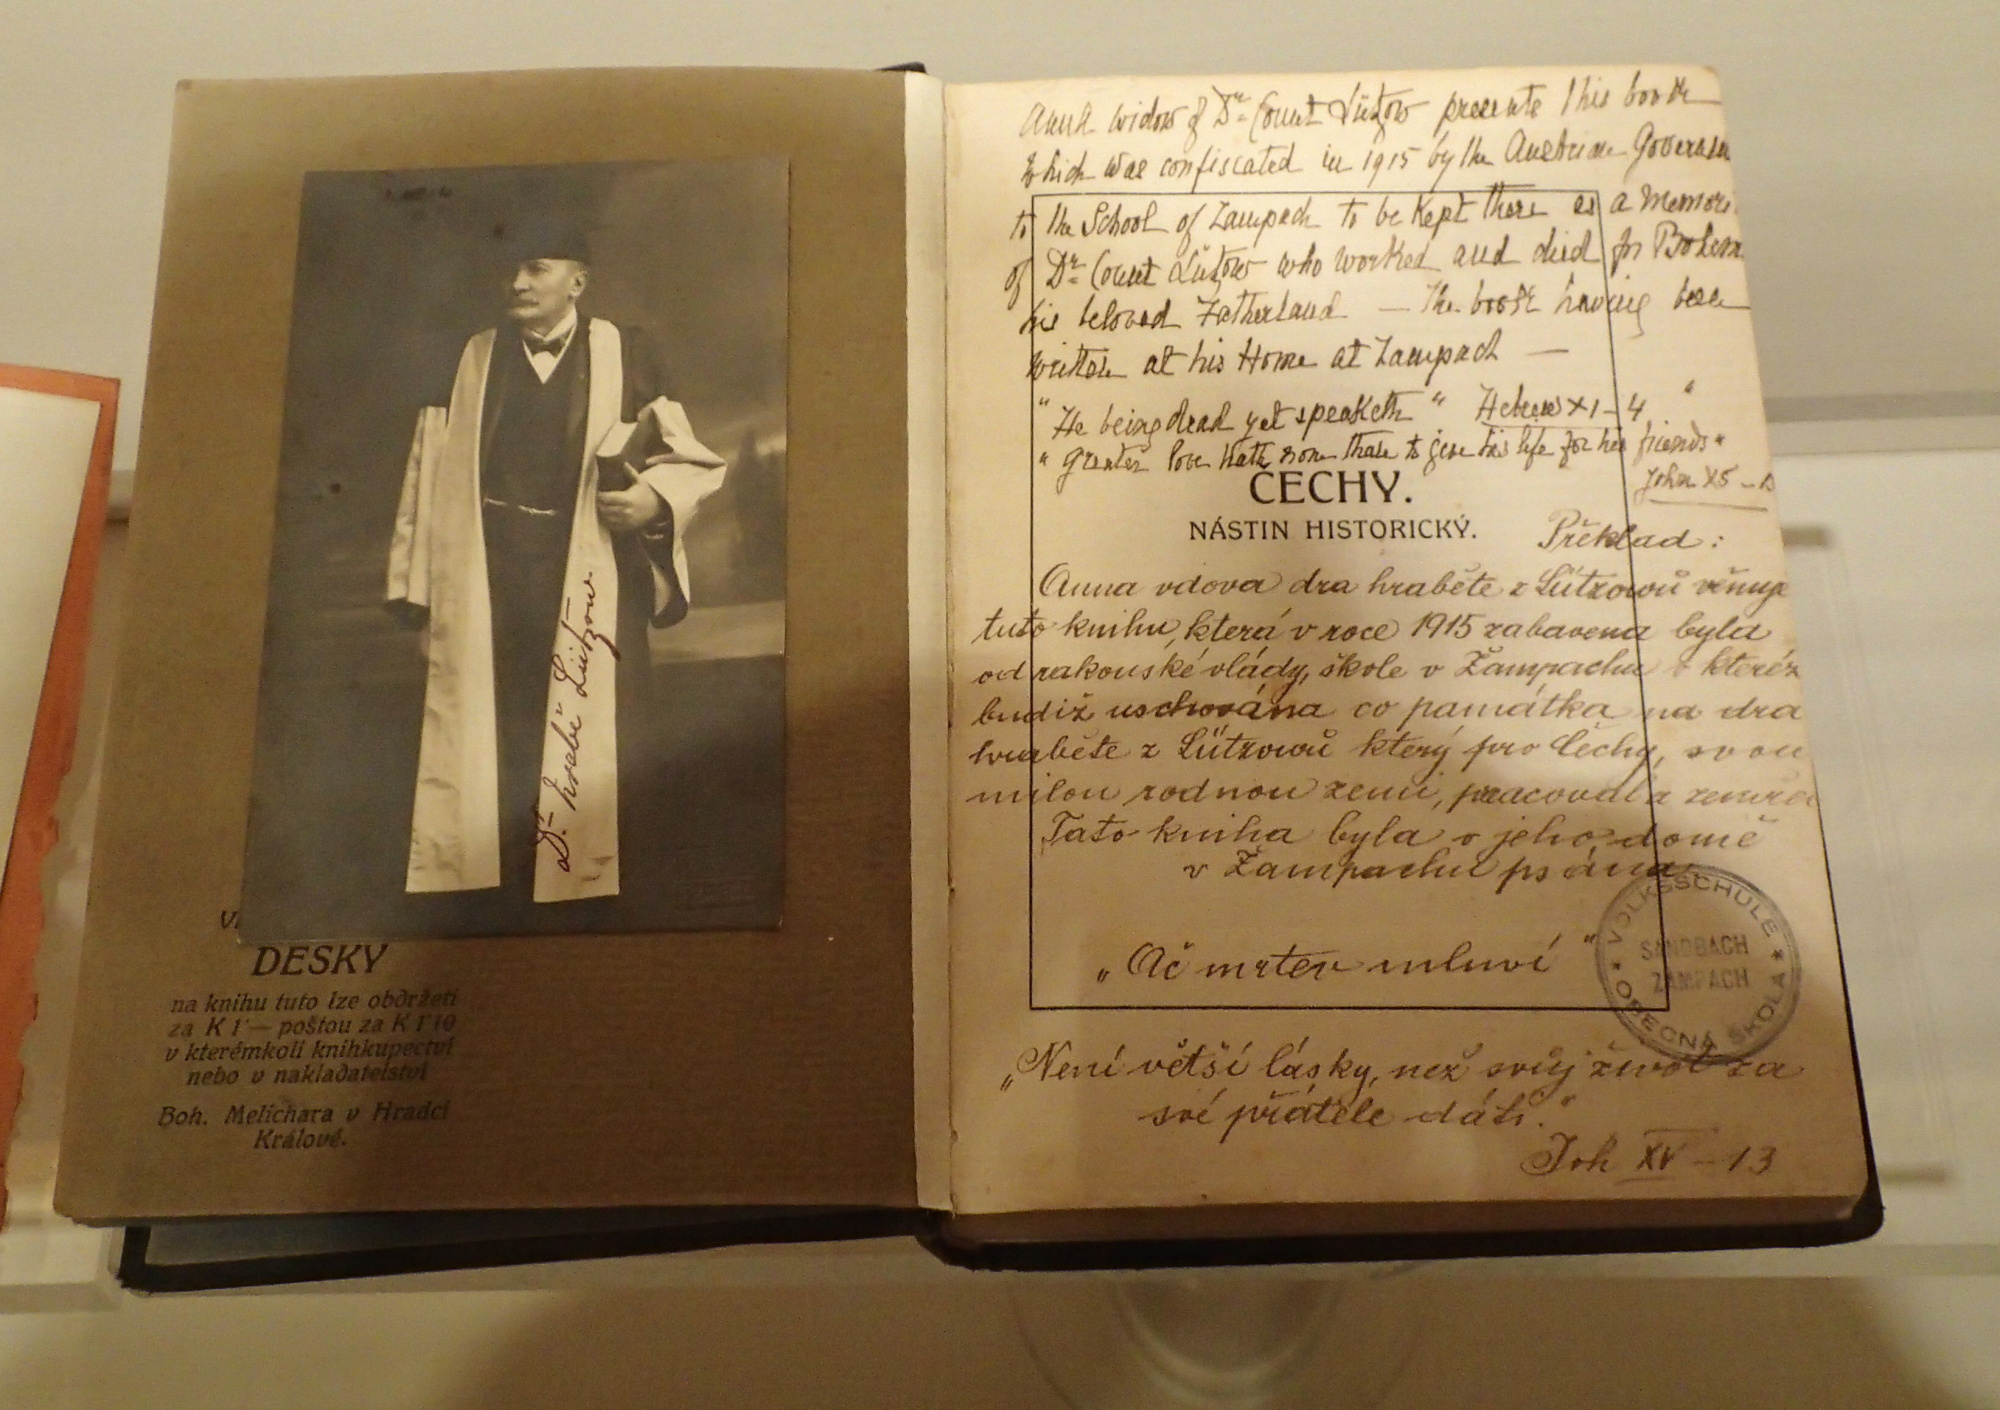 Dr. hrabě Lützow.
DESKY
na knihu tuto lze obdržeti
za K 1·— poštou za K 1·10
v kterémkoli knihkupectví
nebo v nakladatelství
Boh. Melichara v Hradci
Králové.
Anna widow of Dr Count Lützow presents this book
which was confiscated in 1915 by the Austrian
to the School of Zampach to be kept there as a
of Dr Count Lützow who worked and died for
his beloved Fatherland — The book having been
written at his Home at Zampach —
"He being dead yet speaketh" Hebrews XI-4 "
"greater love hath none than to give his life for his friends"
John X5 - 13
ČECHY.
NÁSTIN HISTORICKÝ.
Překlad:
Anna vdova dra hraběte z Lützowů věnuje
tuto knihu, která v roce 1915 zabavena byla
od rakouské vlády, škole v Žampachu v kteréž
budiž uschována co památka na dra
hraběte z Lützowů který pro Čechy, svou
milou rodnou zemi, pracoval a zemřel
Tato kniha byla v jeho domě
v Žampachu psána
„Ač mrtev mluví"
VOLKSSCHULE
SANDBACH
ŽAMPACH
OBECNÁ ŠKOLA
„Není větší lásky, než svůj život za
své přátele dáti."
Joh XV - 13